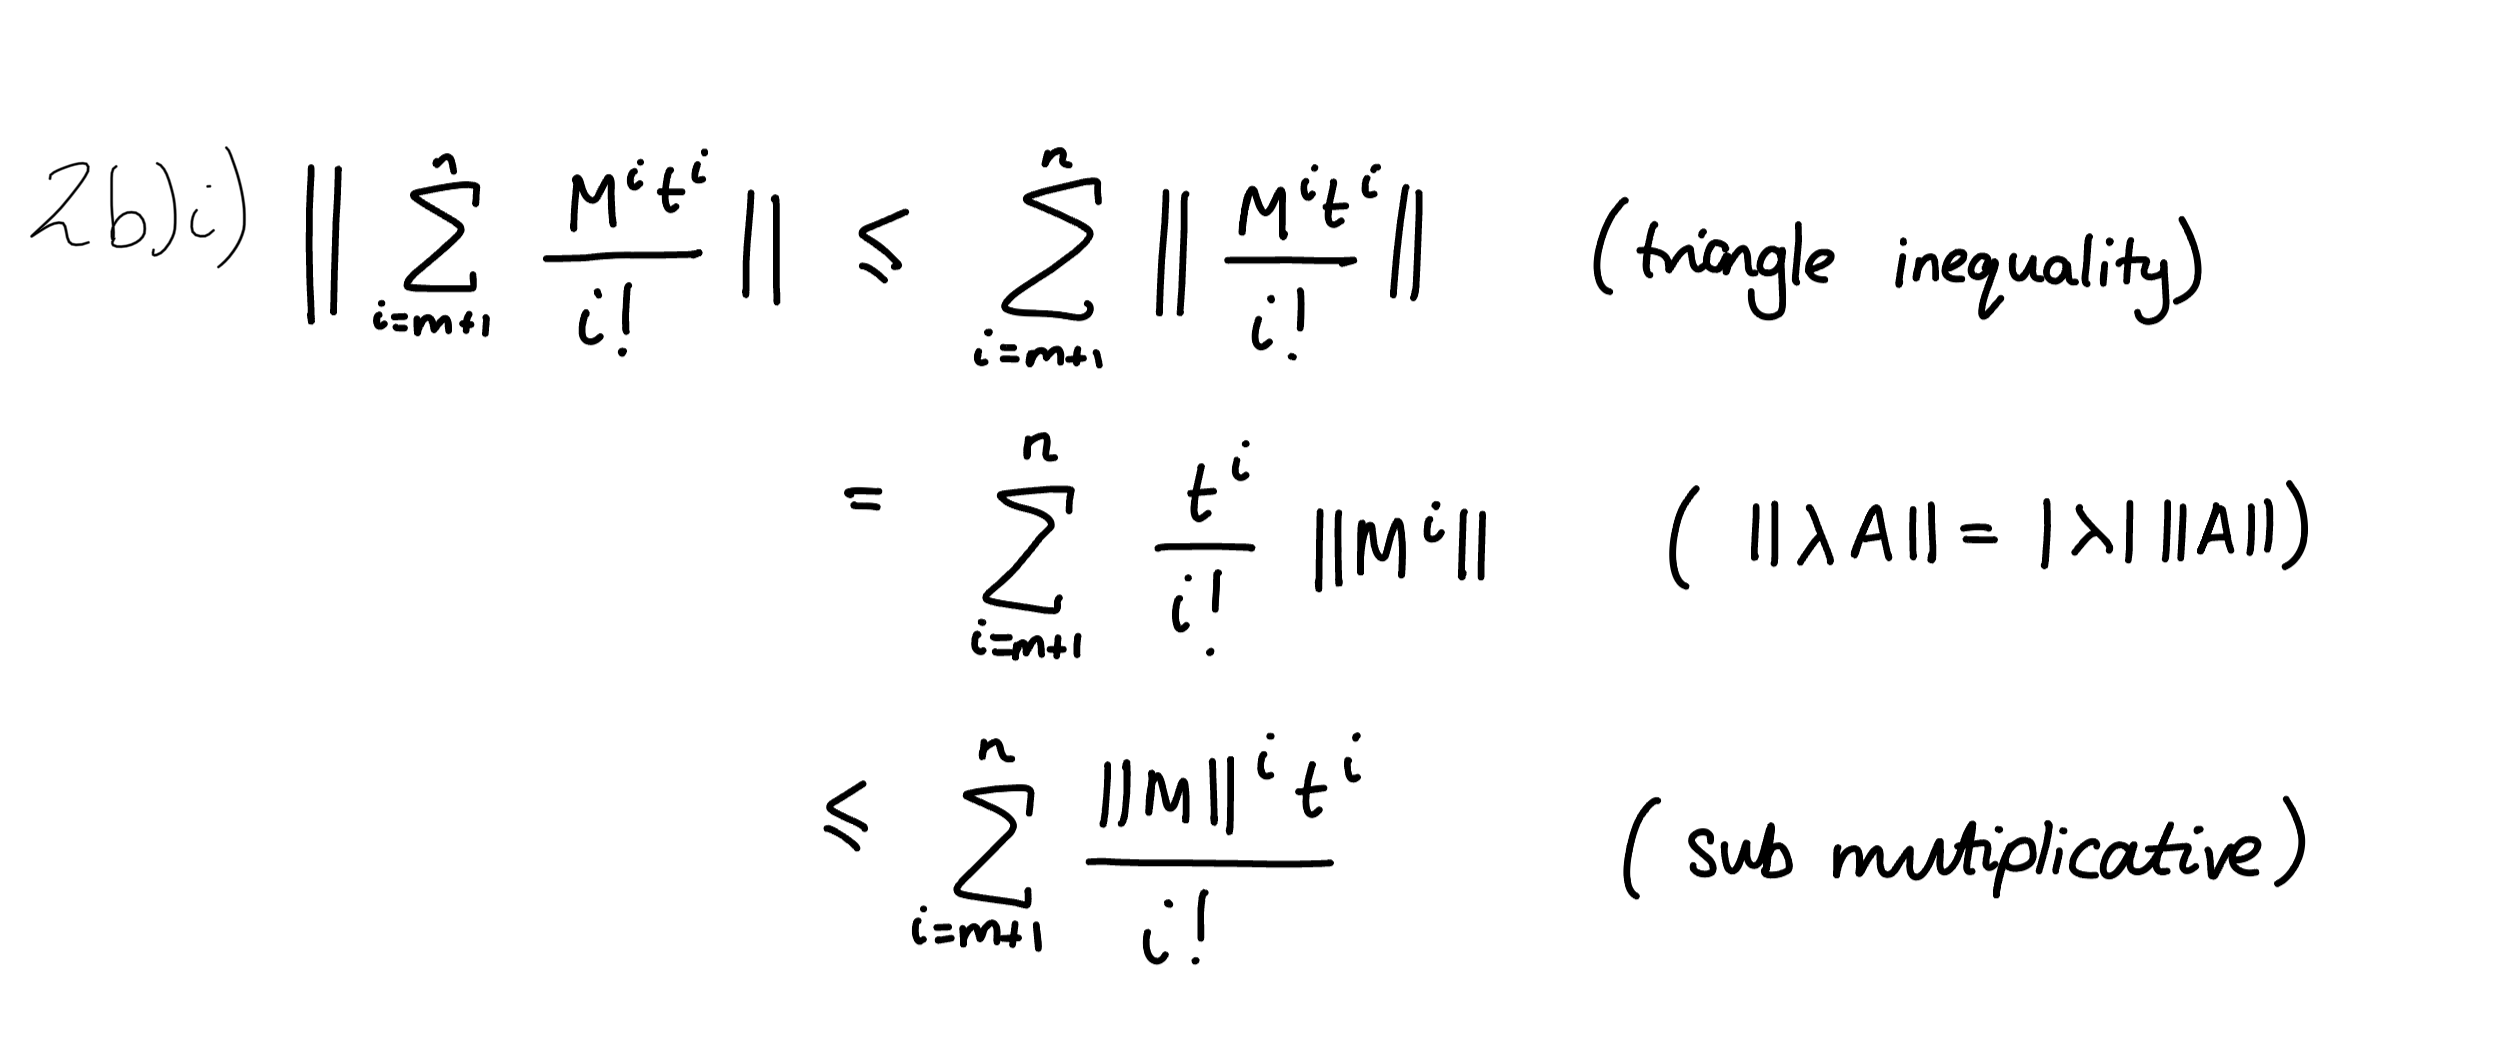 2b)i) $\left\| \sum_{i=m+1}^{n} \frac{M^i t^i}{i!} \right\| \leq \sum_{i=m+1}^{n} \left\| \frac{M^i t^i}{i!} \right\|$ (triangle inequality)
$= \sum_{i=m+1}^{n} \frac{t^i}{i!} \|M^i\|$ ($\|\lambda A\| = |\lambda| \|A\|$)
$\leq \sum_{i=m+1}^{n} \frac{\|M\|^i t^i}{i!}$ (sub mutiplicative)